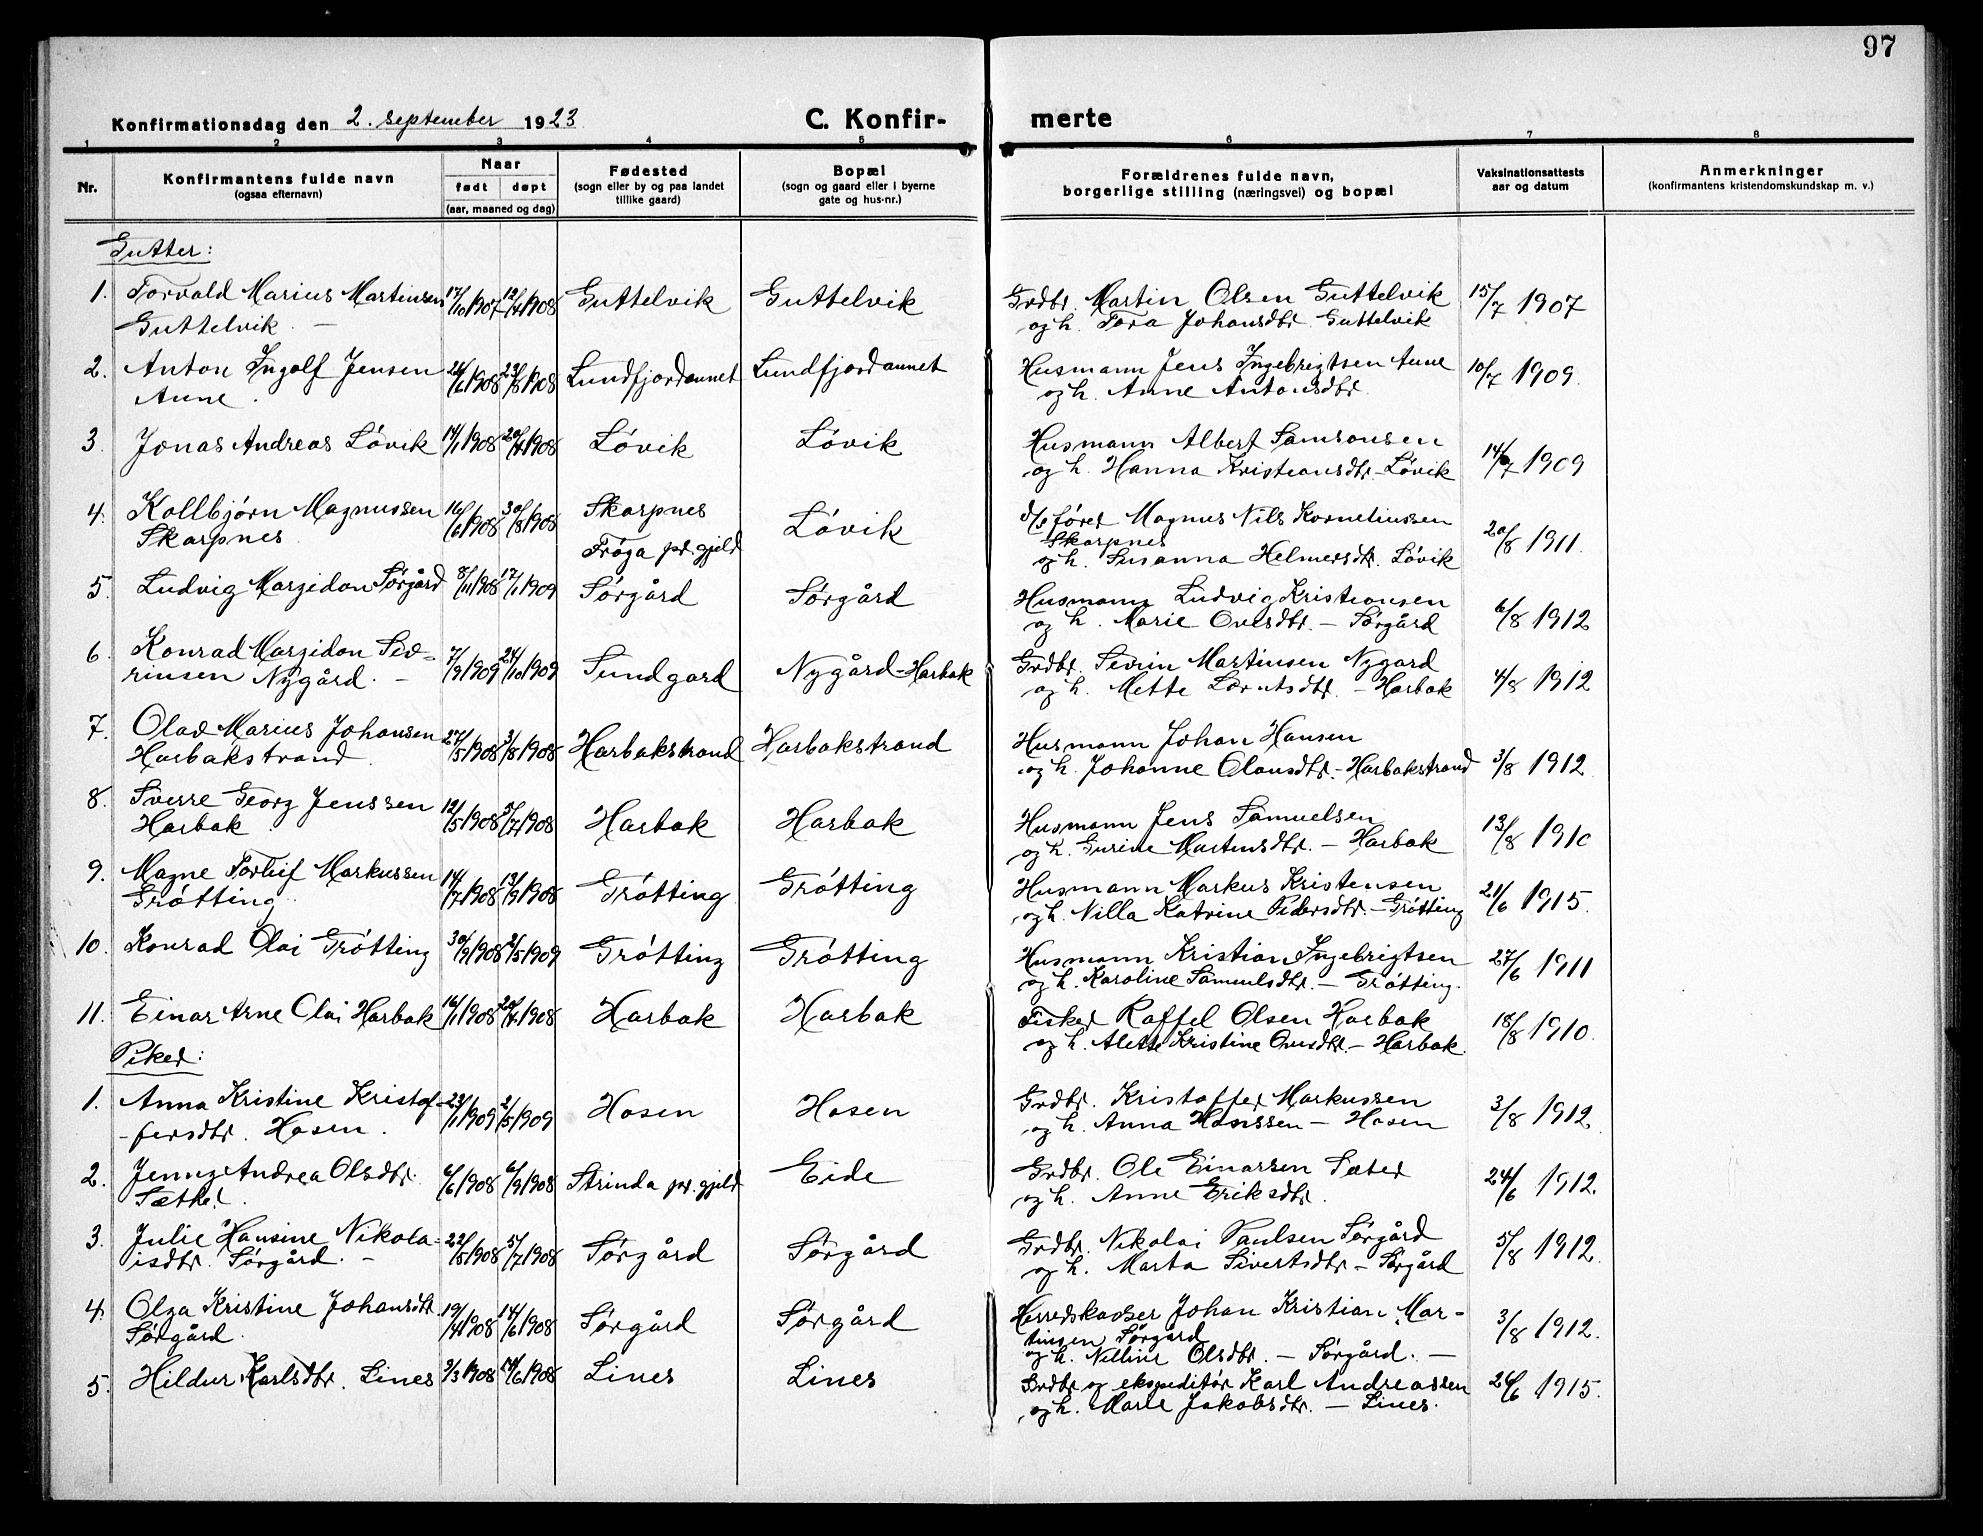 97
Konfirmationsdag den 2. september 1923
C. Konfir-
merte
1 2 3 4 5 6 7 8
Nr.
Konfirmantens fulde navn
(ogsaa efternavn)
Naar
født døpt
(aar, maaned og dag)
Fødested
(sogn eller by og paa landet
tillike gaard)
Bopæl
(sogn og gaard eller i byerne
gate og hus-nr.)
Forældrenes fulde navn,
borgerlige stilling (næringsvei) og bopæl
Vaksinationsattests
aar og datum
Anmerkninger
(konfirmantens kristendomskundskap m. v.)
Gutter:
1. Torvald Marius Martinsen 17/10 1907 12/4 1908 Guttelvik Guttelvik Grdbr. Martin Olsen Guttelvik 15/7 1907
Guttelvik. — og h. Tora Johansdtr. Guttelvik
2. Anton Ingolf Jensen 1908 23/8 1908 Lundfjordaunet Lundfjordaunet Husmann Jens Ingebrigtsen Aune 10/7 1909.
Aune. og h. Anne Antonsdtr.
3. Jonas Andreas Løvik 14/1 1908 20/4 1908 Løvik Løvik Husmann Albert Samsonsen 14/7 1909
og h. Hanna Kristiansdtr. Løvik
4. Kollbjørn Magnussen 16/6 1908 30/8 1908 Skarpnes Løvik d/s fører Magnus Nils Kornetiussen 20/8 1911.
Skarpnes. Frøya pr.gjeld Skarpnes
og h. Susanna Helmersdtr. Løvik
5. Ludvig Margidon Sørgård 8/11 1908 17/1 1909 Sørgård Sørgård Husmann Ludvig Kristiansen 6/8 1912
og h. Marie Ovesdtr. — Sørgård
6. Konrad Margidon Sev- 7/9 1909 24/10 1909 Sundgard Nygård-Harbak Grdbr. Sevrin Martinsen Nygard 4/8 1912
rinsen Nygård. — og h. Mette Lorntsdtr. — Harbak
7. Olav Marius Johansen 27/5 1908 3/8 1908 Harbakstrand Harbakstrand Husmann Johan Hansen 3/8 1912.
Harbakstrand. og h. Johanne Olausdtr. — Harbakstrand
8. Sverre Georg Jenssen 12/5 1908 5/7 1908 Harbak Harbak Husmann Jens Samuelsen 13/8 1910
Harbak. og h. Gurine Martensdtr. — Harbak
9. Magne Torleif Markussen 14/7 1908 13/9 1908 Grøtting Grøtting Husmann Markus Kristensen 21/6 1915.
Grøtting. og h. Nilla Katrine Pedersdtr. — Grøtting
10. Konrad Olai Grøtting 30/9 1908 2/5 1909 Grøtting Grøtting Husmann Kristian Ingebrigtsen 27/6 1911
og h. Karoline Samuelsdtr. — Grøtting.
11. Einar Arne Olai Harbak 16/1 1908 20/4 1908 Harbak Harbak Fisker Raffel Olsen Harbak 18/8 1910.
og h. Alette Kristine Ovesdtr. — Harbak.
Piker:
1. Anna Kristine Kristof- 23/1 1909 2/5 1909 Hosen Hosen Grdbr. Kristoffer Markussen 3/8 1912.
-fersdtr. Hosen. og h. Anna Hanssen — Hosen
2. Jenny Andrea Olsdtr. 6/6 1908 6/9 1908 Strinda pr.gjeld Eide Grdbr. Ole Einarsen Sæter 24/6 1912.
Sæther. og h. Anne Eriksdtr.
3. Julie Hansine Nikola- 22/5 1908 5/7 1908 Sørgård Sørgård Grdbr. Nikolai Paulsen Sørgård 5/8 1912.
isdtr. Sørgård. — og h. Marta Sivertsdtr — Sørgård
4. Olga Kristine Johansdtr. 19/4 1908 14/6 1908 Sørgård Sørgård Herredskasser Johan Kristian Mar- 3/8 1912.
Sørgård. tinsen Sørgård
og h. Olsdtr. — Sørgård. —
5. Hildur Karlsdtr. Lines 3/3 1908 14/6 1908 Lines Lines Grdbr og ekspeditør Karl Andreassen 26/6 1915.
og h. Marie Jakobsdtr. — Lines.